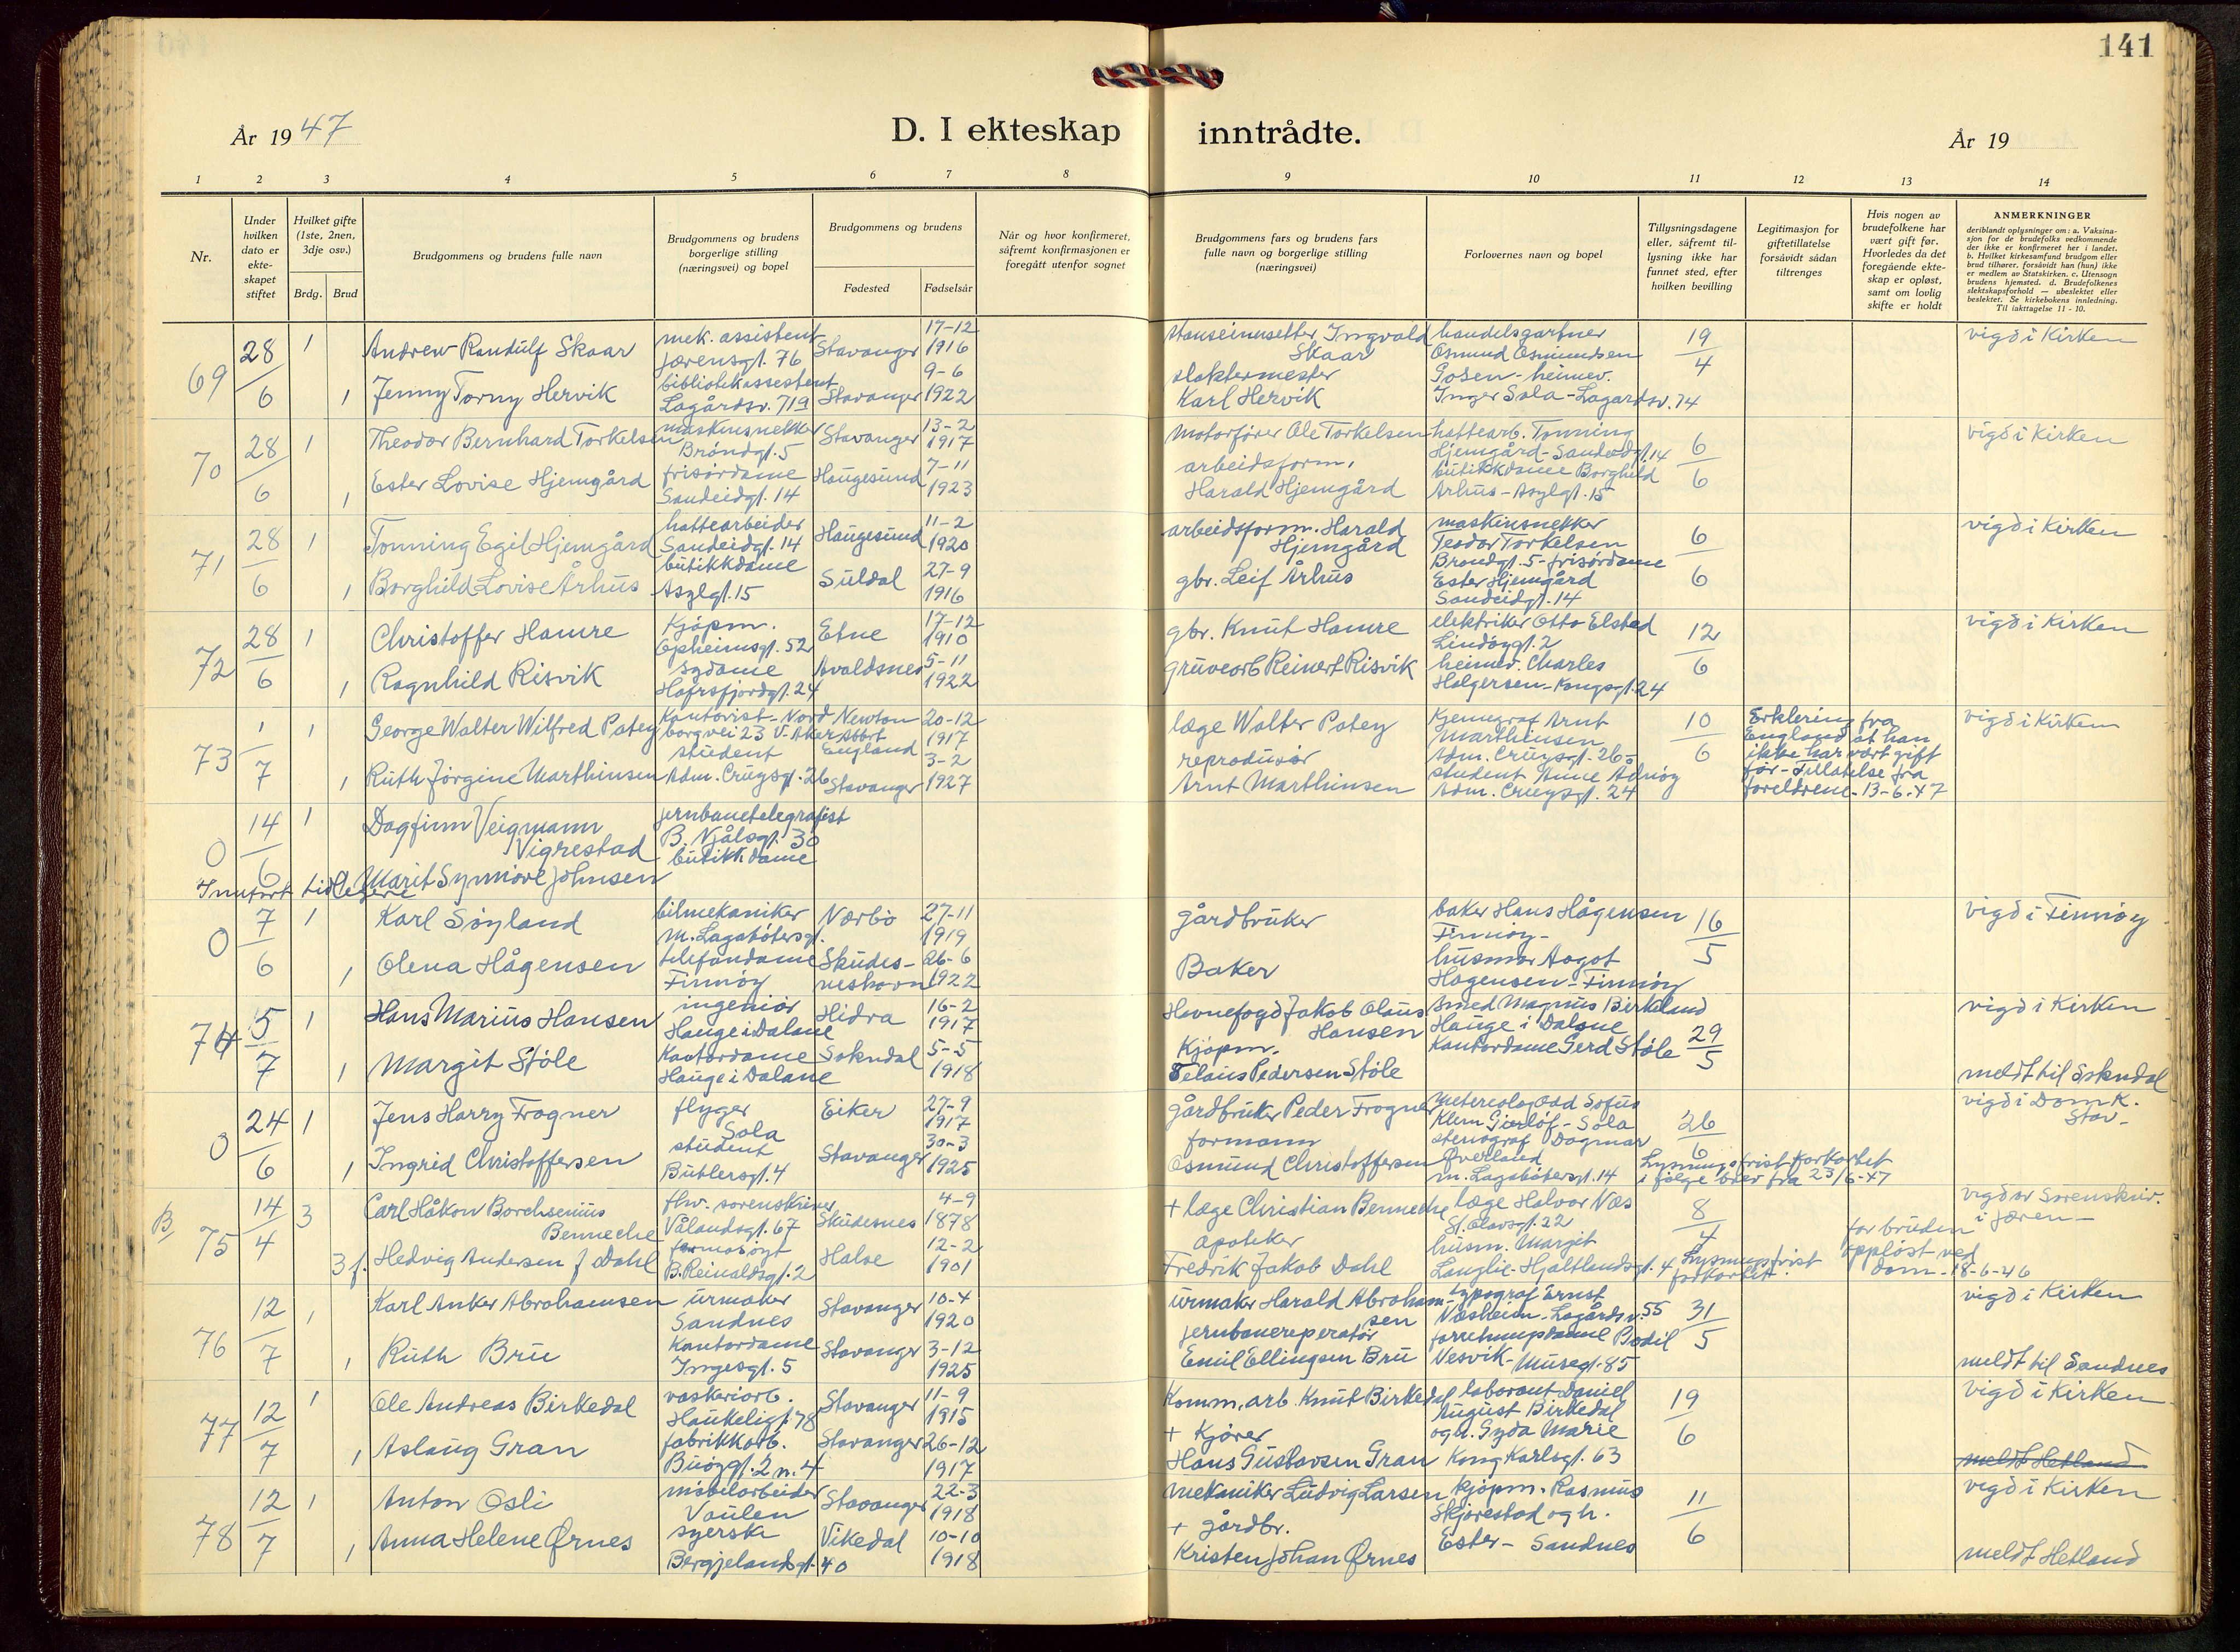 141
År 1947
D. I ekteskap inntrådte.
År 19
1 2 3 4 5 6 7 8 9 10 11 12 13 14
Nr.
Under hvilken dato er ekteskapet stiftet
Hvilket gifte (1ste, 2nen, 3dje osv.)
Brdg. Brud
Brudgommens og brudens fulle navn
Brudgommens og brudens borgerlige stilling (næringsvei) og bopel
Brudgommens og brudens
Fødested Fødselsår
Når og hvor konfirmeret, såfremt konfirmasjonen er foregått utenfor sognet
Brudgommens fars og brudens fars fulle navn og borgerlige stilling (næringsvei)
Forlovernes navn og bopel
Tillysningsdagene eller, såfremt tillysning ikke har funnet sted, efter hvilken bevilling
Legitimasjon for giftetillatelse forsåvidt sådan tiltrenges
Hvis nogen av brudefolkene har vært gift før. Hvorledes da det foregående ekteskap er opløst, samt om lovlig skifte er holdt
ANMERKNINGER
deriblandt oplysninger om: a. Vaksinasjon for de brudefolks vedkommende der ikke er konfirmeret her i landet. b. Hvilket kirkesamfund brudgom eller brud tilhører, forsåvidt han (hun) ikke er medlem av Statskirken. c. Utensogn brudens hjemsted. d. Brudefolkenes slektskapsforhold — ubeslektet eller beslektet. Se kirkebokens innledning. Til iakttagelse 11 - 10.
69 28/6 1 Andrew Randulf Skaar mek. assistent Jærensgt. 76 Stavanger 17-12 1916
1 Jenny Torny Hervik bibliotekassestent Lagårdsv. 719 Stavanger 9-6 1922
Ingvald Skaar
slaktermester Karl Hervik
handelsgartner Osmund Osmundsen Gosen - heimev. Inger Sola - Lagardsv. 74
19/4
vigd i Kirken
70 28/6 1 Theodor Bernhard Torkelsen maskinsnekker Bröndgt. 5 Stavanger 13-2 1917
1 Ester Lovise Hjemgård frisördame Sandeidgt. 14 Haugesund 7-11 1923
Motorförer Ole Torkelsen
arbeidsform. Harald Hjemgård
hattearb. Tonning Hjemgård - Sandeidgt. 14 butikkdame Borghild Århus - Asylgt. 15
6/6
vigd i Kirken
71 28/6 1 Tonning Egil Hjemgård hattearbeider Sandeidgt. 14 Haugesund 11-2 1920
1 Borghild Lovise Århus butikkdame Asylgt. 15 Suldal 27-9 1916
arbeidsform. Harald Hjemgård
gbr. Leif Århus
maskinsnekker Teodor Torkelsen Bröndgt. 5 - frisördame Ester Hjemgård Sandeidgt. 14
6/6
vigd i Kirken
72 28/6 1 Christoffer Hamre Kjöpm. Opheimsgt. 52 Etne 17-12 1910
1 Ragnhild Risvik sydame Hafrsfjordgt. 24 Avaldsnes 5-11 1922
gbr. Knut Hamre
gruvearb Reinert Risvik
elektriker Otto Elsted Lindöygt. 2 heimev. Charles Holgersen - Kongsgt. 24
12/6
vigd i Kirken
73 1/7 1 George Walter Wilfred Patey Kontorist - Nordborgvei 23 V. Aker Newton Abbot England 20-12 1917
1 Ruth Jörgine Marthinsen student Adm. Cruysgt. 26 Stavanger 3-2 1927
læge Walter Patey
reprodusör Arnt Marthinsen
Kjemigraf Arnt Marthinsen Adm. Cruysgt. 26 - student Anne Adnöy Adm. Cruysgt. 24
10/6
Erklering fra England at han ikke har vært gift för - Tillatelse fra foreldrene - 13-6-47
vigd i Kirken
0 14/6 1 Dagfinn Veigmann Vigrestad jernbanetelegrafist B. Njålsgt. 30
Marit Synnöve Johnsen butikkdame
Innfört tidlegere
0 7/6 1 Karl Söyland bilmekaniker M. Lagabötersgt. Nærbö 27-11 1919
1 Olena Hågensen telefondame Finnöy Skudesneshavn 26-6 1922
gårdbruker
Baker
baker Hans Hågensen Finnöy - husmor Aagot Hagensen - Finnöy
16/5
vigd i Finnöy
74 5/7 1 Hans Marius Hansen ingeniör Hauge i Dalane Hidra 16-2 1917
1 Margit Stöle Kontordame Hauge i Dalane Sokndal 5-5 1918
Havnefogd Jakob Olaus Hansen
Kjöpm. Pedersen Stöle
Magnus Birkeland Hauge i Dalane Kontordame Gerd Stöle
29/5
vigd i Kirken
meldt til Sokndal
0 24/6 1 Jens Harry Frogner flyger Sola Eiker 27-9 1917
1 Ingrid Christoffersen student Butlersgt. 4 Stavanger 30-3 1925
gårdbruker Peder Frogner
formann Osmund Christoffersen
metereolog Odd Sofus Klem Gierlöf - Sola stenograf Dagmar Överland M. Lagabötersgt. 14
26/6
Lysningsfrist forkortet i fölge brev fra 23/6-47
vigd i Domk. Stav.
B 75 14/4 3 Carl Håkon Borchsenius Bennecke fhv. sorenskriver Vålandsgt. 67 Skudesnes 4-9 1878
3 f. Hedvig Andersen f Dahl B. Reinaldsgt. 2 Halse 12-2 1901
+ læge Christian Bennecke
apoteker Fredrik Jakob Dahl
læge Halvor Næs St. Olavsgt. 22 husm. Margit Langlie - Hjaltlandsgt. 4
8/4
Lysningsfrist forkortet.
for bruden opplöst ved dom - 18-6-46
vigd av Sorenskriv. i Jæren -
76 12/7 1 Karl Anker Abrahamsen urmaker Sandnes Stavanger 10-4 1920
1 Ruth Bru Kontordame Ingesgt. 5 Stavanger 3-12 1925
urmaker Harald Abrahamsen
jernbanereperatör Emil Ellingsen Bru
typograf Ernst Væsheim - Lagårdsv. 55 forretningsdame Bodil Vesvik - Musegt. 85
31/5
vigd i Kirken
meldt til Sandnes
77 12/7 1 Ole Andreas Birkedal vaskeriarb. Haukeligt. 78 Stavanger 11-9 1915
1 Aslaug Gran fabrikkarb. Buöygt. 2 n. 4 Stavanger 26-12 1917
Komm. arb. Knut Birkedal
+ Kjörer Hans Gustavsen Gran
laborant Daniel August Birkedal og h. Gyda Marie Kong Karlsgt. 63
19/6
vigd i Kirken
meldt Hetland
78 12/7 1 Anton Osli möbelarbeider Vaulen Stavanger 22-3 1918
1 Anna Helene Ørnes syerske Bergjelandsgt. 40 Vikedal 10-10 1918
mekaniker Ludvig Larsen
+ gårdbr. Kristen Johan Ørnes
kjöpm. Rasmus Skjörestad og h. Ester - Sandnes
11/6
vigd i Kirken
meldt Hetland